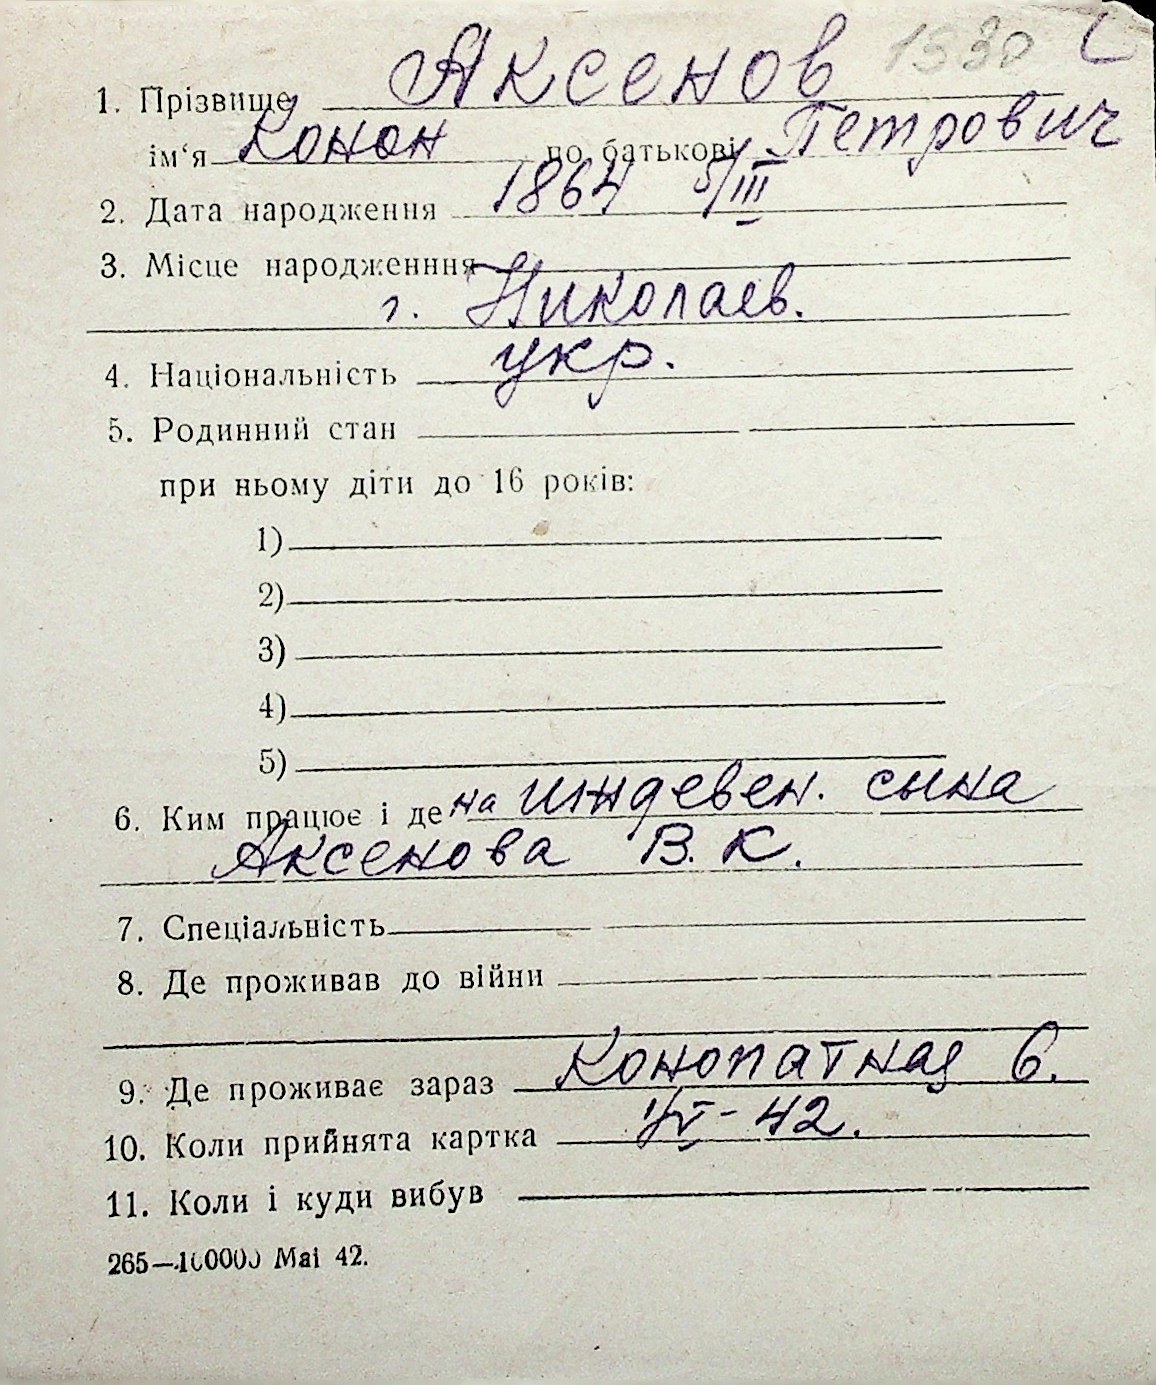 1530
1. Прізвище Аксенов
ім‘я Конон по батькові Петрович
2. Дата народження 1864 5/III
3. Місце народженння
г. Николаев.
4. Національність укр.
5. Родинний стан
при ньому діти до 16 років:
1)
2)
3)
4)
5)
6. Ким працює і де на индевен. сына
Аксенова В. К.
7. Спеціальність
8. Де проживав до війни
9. Де проживає зараз Конопатная 6.
10. Коли прийнята картка 1/V-42.
11. Коли і куди вибув
265—100000 Mai 42.